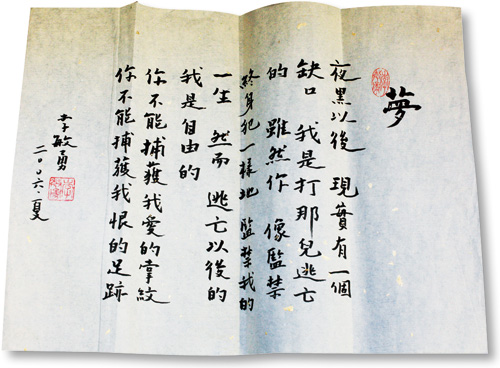 夢
夜黑以後 現實有一個
缺口 我是打那兒逃亡
的 雖然你 像監禁
終身犯一樣地 監禁我的
一生 然而 逃亡以後的
我是自由的
你不能捕獲我愛的掌紋
你不能捕獲我恨的足跡
李敏勇
二〇〇六.夏